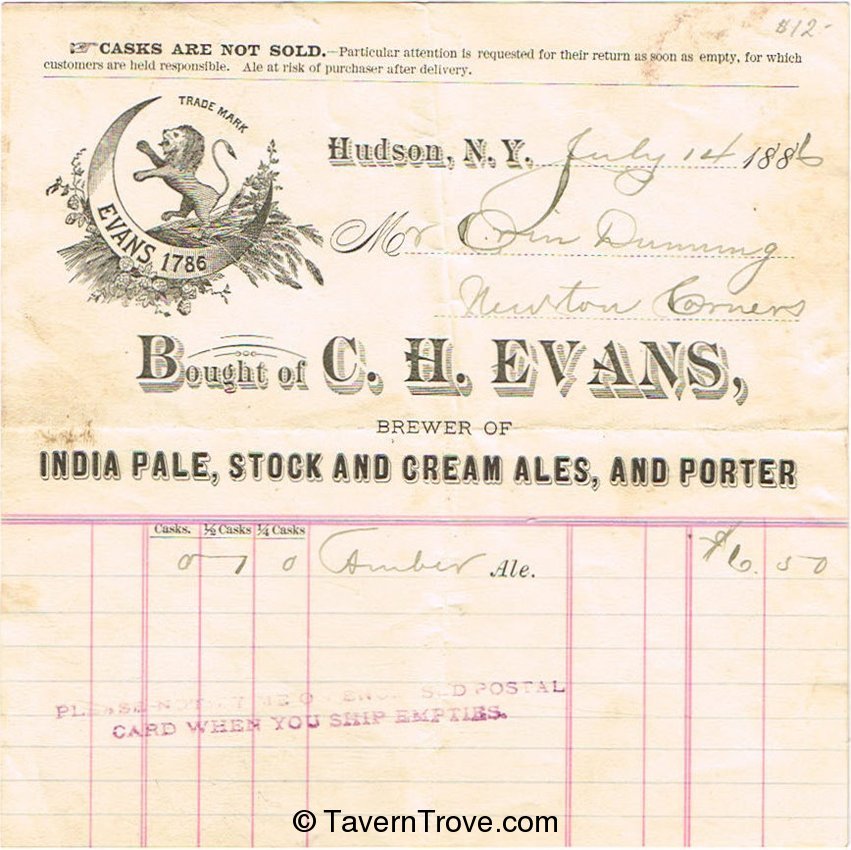 $12-
☞CASKS ARE NOT SOLD.—Particular attention is requested for their return as soon as empty, for which
customers are held responsible. Ale at risk of purchaser after delivery.
TRADE MARK
EVANS, 1786
Hudson, N. Y. July 14 1886
Mr Orin Dunning
Newton Corners
Bought of C. H. EVANS,
BREWER OF
INDIA PALE, STOCK AND CREAM ALES, AND PORTER
Casks. ½ Casks ¼ Casks
0 1 0 Amber Ale. $6.50
PLEASE NOTIFY ME ON ENCLOSED POSTAL
CARD WHEN YOU SHIP EMPTIES.
© TavernTrove.com